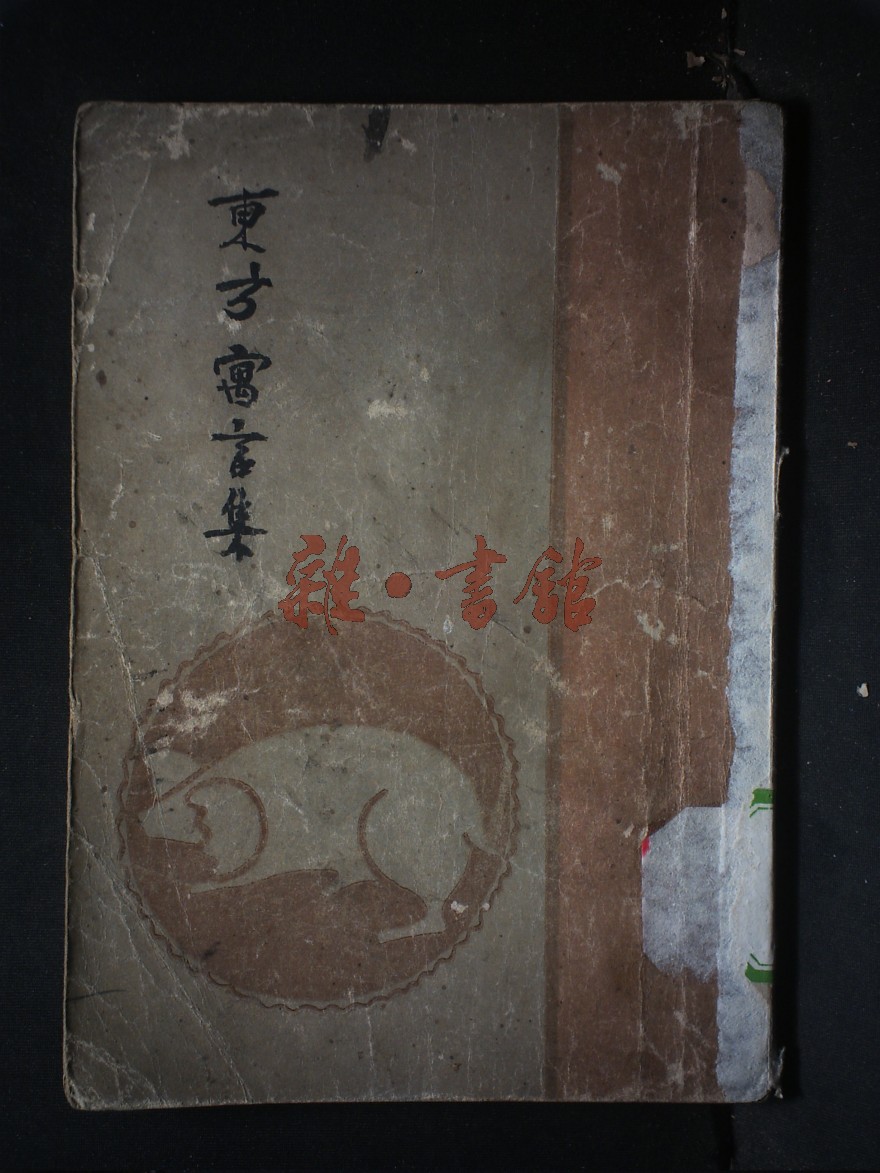 東方寓言集
雜·書館